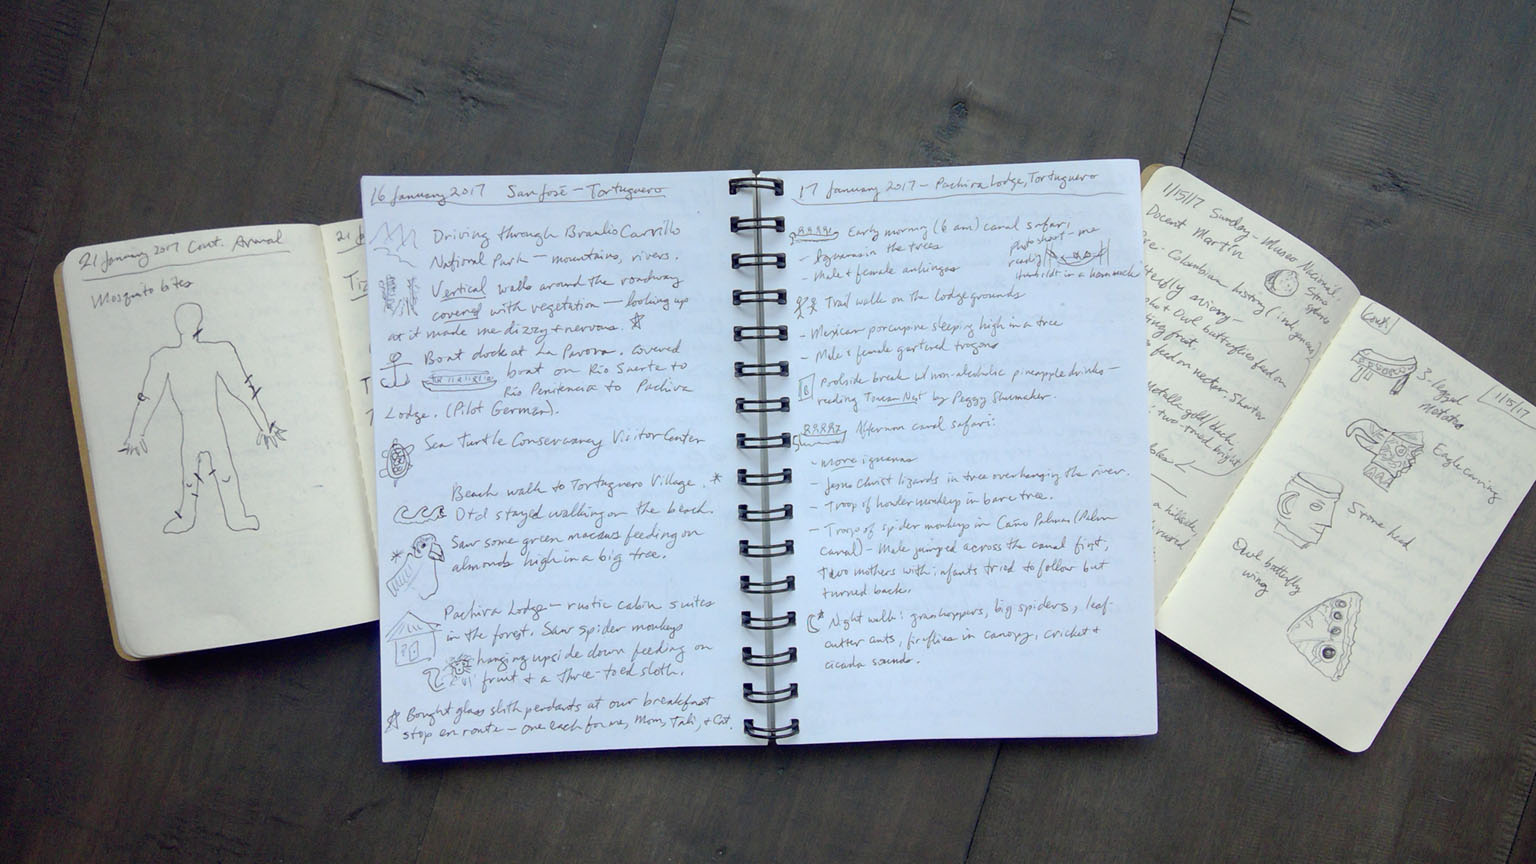 21 January 2017 Cont. Arenal
Mosquito bites
21 J
16 January 2017 San José – Tortuguero
Driving through Braulio Carrillo
National Park – mountains, rivers.
Vertical walls around the roadway
covered with vegetation – looking up
at it made me dizzy + nervous.
Boat dock at La Pavona. Covered
boat on Rio Suerte to
Rio Penitencia to Pachira
Lodge. (Pilot German).
Sea Turtle Conservancy Visitor Center
Beach walk to Tortuguero Village. *
Dtd stayed walking on the beach.
* Saw some green macaws feeding on
almonds high in a big tree.
Pachira Lodge – rustic cabin suites
in the forest. Saw spider monkeys
hanging upside down feeding on
fruit + a three-toed sloth.
Bought glass sloth pendants at our breakfast
stop en route – one each for me, Mom, Tab, + Cat.
17 January 2017 – Pachira Lodge, Tortuguero
Early morning (6 am) canal safari,
- Iguanas in the trees
- Male + female anhingas
photo short – me
reading
Humboldt in a hammock
Trail walk on the lodge grounds
- Mexican porcupine sleeping high in a tree
- Male + female gartered trogons
Poolside break w/ non-alcoholic pineapple drinks –
reading by Peggy Shumaker.
Afternoon canal safari:
- More iguanas
- Jesus Christ lizards in tree overhanging the river.
- Troop of howler monkeys in bare tree.
- Troop of spider monkeys in Caño Palma (Palm
canal) – Male jumped across the canal first,
two mothers with infants tried to follow but
turned back.
* Night walk: grasshoppers, big spiders, leaf-
cutter ants, fireflies in canopy, cricket +
cicada sounds.
1/15/17 Sunday – Museo Nacional
Docent Martín
Pre-Colombian history (ind, genous)
Stone
sphere
butterfly aviary –
+ Owl butterflies feed on
fruit
feed on nectar. Shorter
metallic gold/black,
two-toned bright
a hillside,
Cont.
1/15/17
3-legged
metate
Eagle carving
Stone head
Owl butterfly
wing